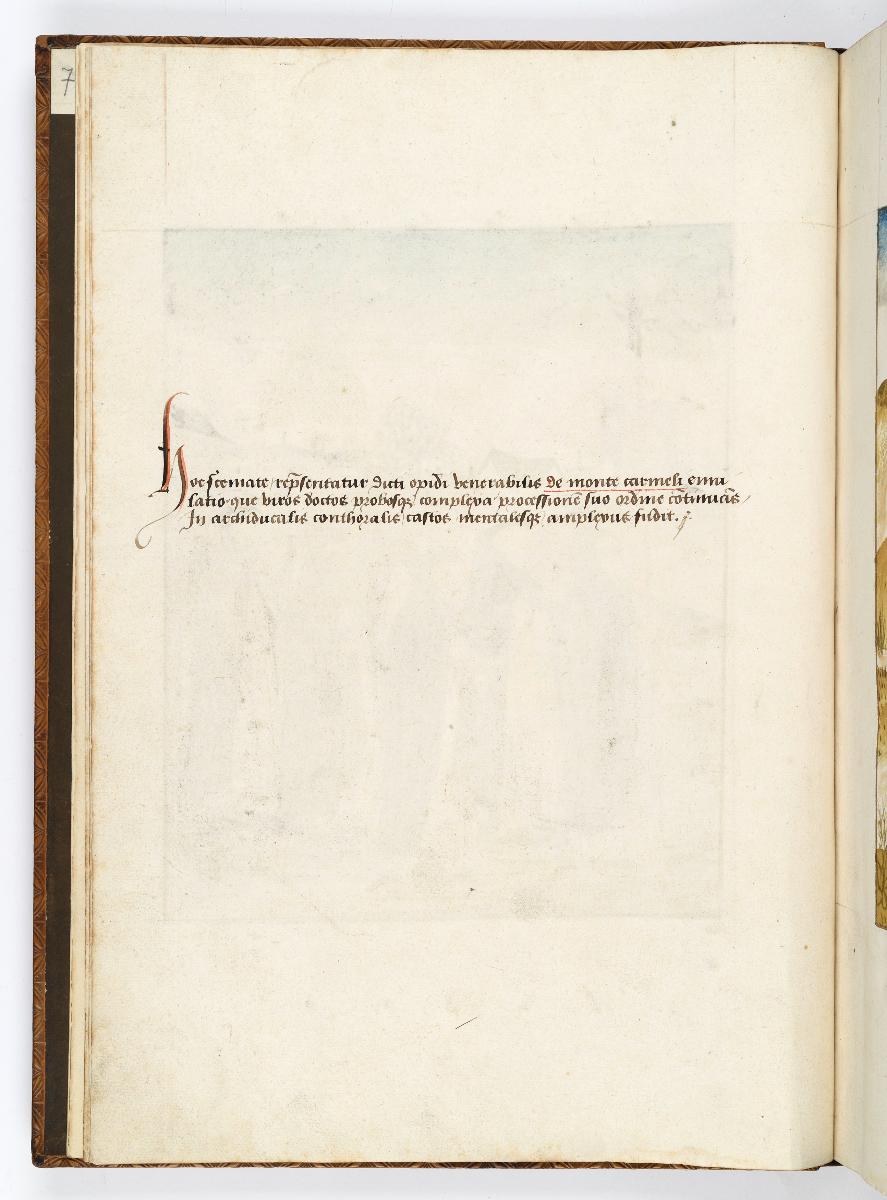 7
Hoc scemate / rep̄sentatur dicti opidi venerabilis de monte carmeli emu
latio que viros doctos probosqꝫ / complexa processionē suo ordine cōtinuās /
In archiducalis conthoralis / castos mentalesqꝫ / amplexus fudit.